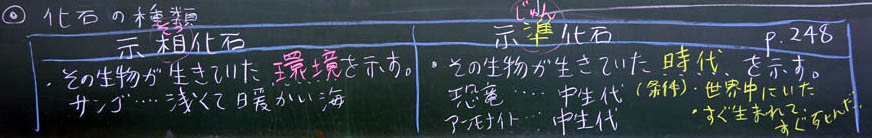 ◎ 化石の種類
そう
示相化石
・その生物が生きていた環境を示す。
サンゴ……浅くて暖かい海
じゅん
示準化石
p.248
・その生物が生きていた時代を示す。
恐竜……中生代
アンモナイト……中生代
(条件)・世界中にいた
・すぐ生まれて、
すぐ死んだ。